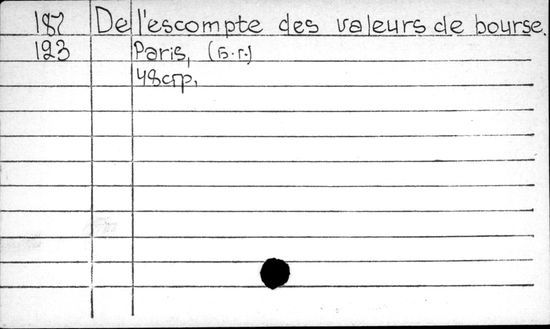 187 De l'escompte des valeurs de bourse.
123 Paris, (б.г.)
48стр.